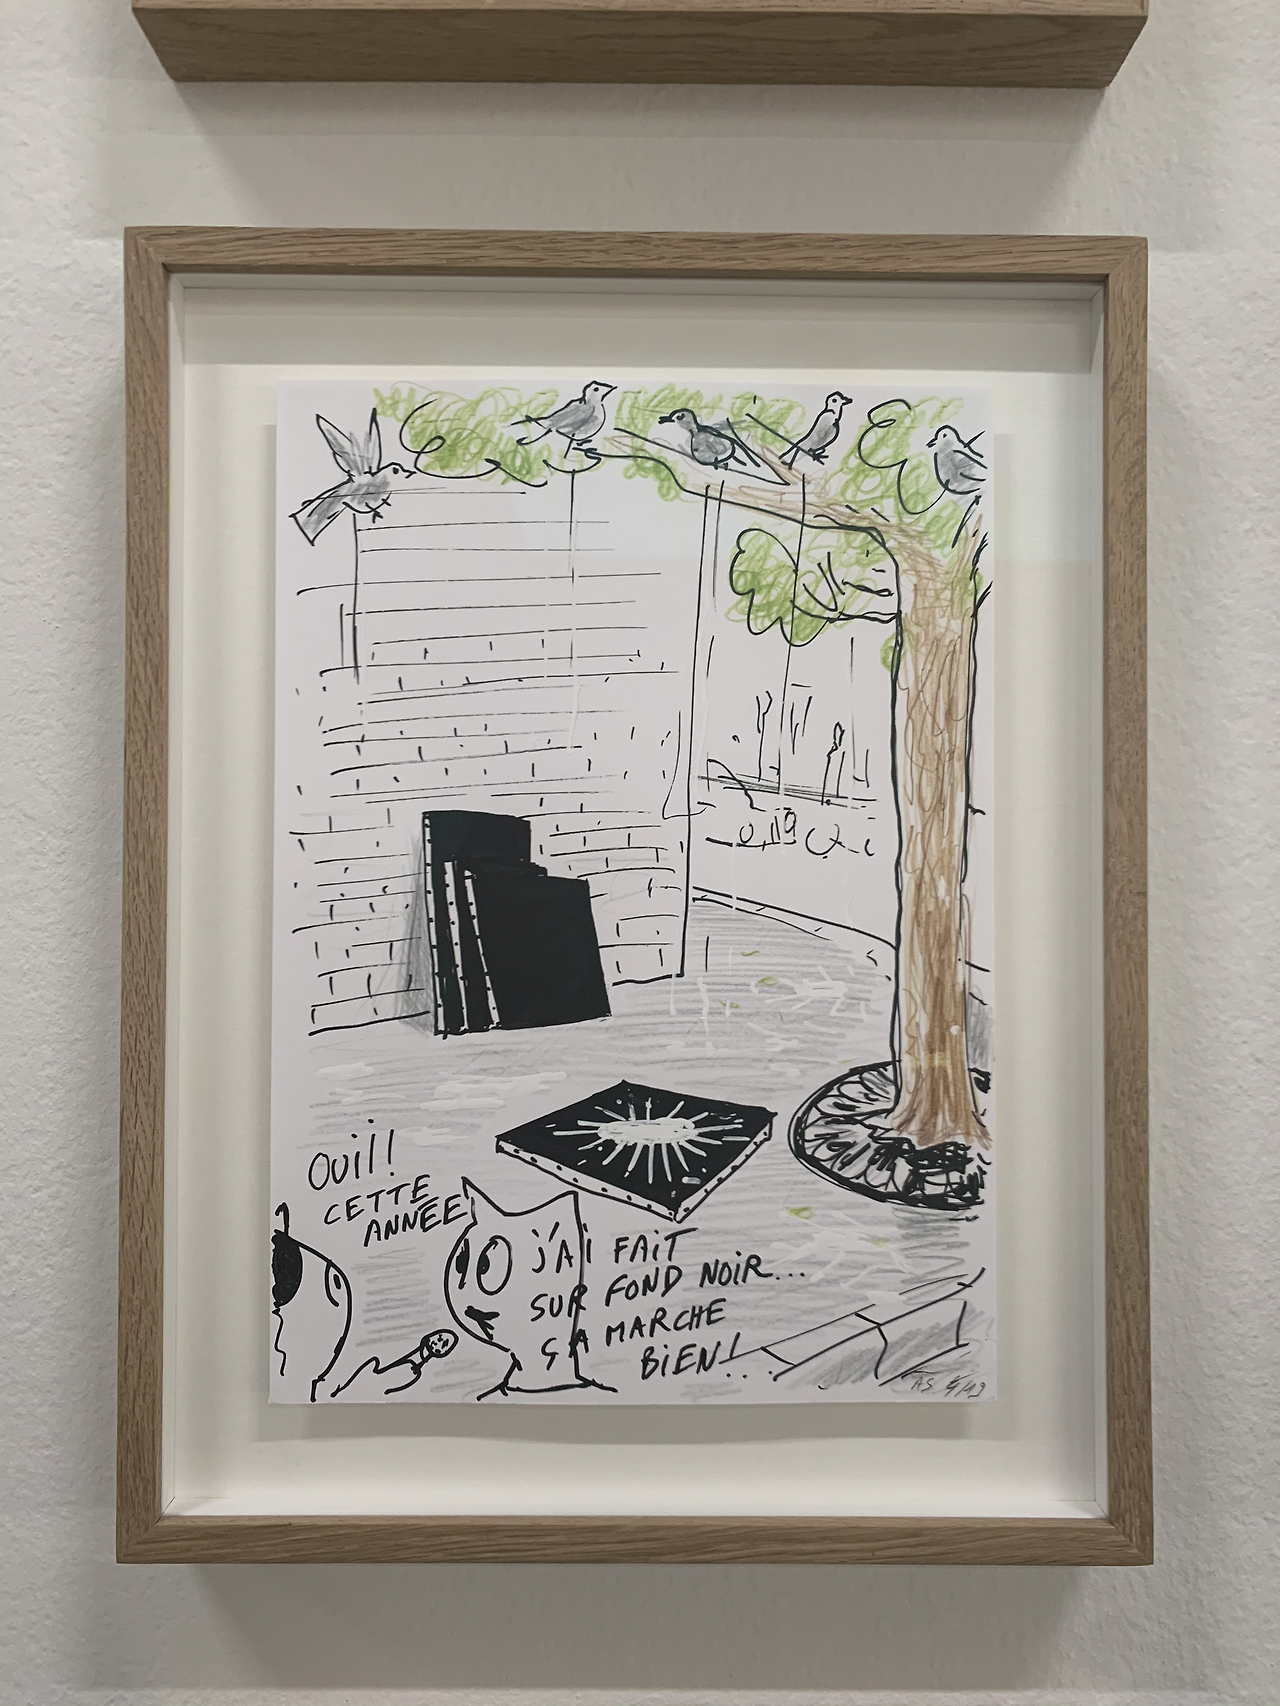 OUiï!
CETTE
ANNÉE
j'Ai FAiT
SUR FOND NOiR...
ÇA MARCHE
BiEN!...
AS